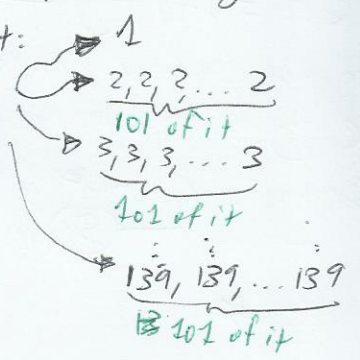 t: 1
2, 2, 2, ... 2
101 of it
3, 3, 3, ... 3
101 of it
139, 139, ... 139
101 of it